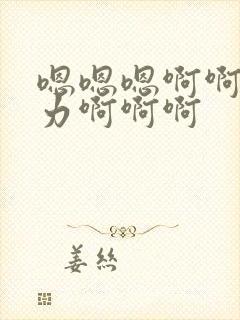 嗯嗯嗯啊啊
力啊啊啊
姜丝